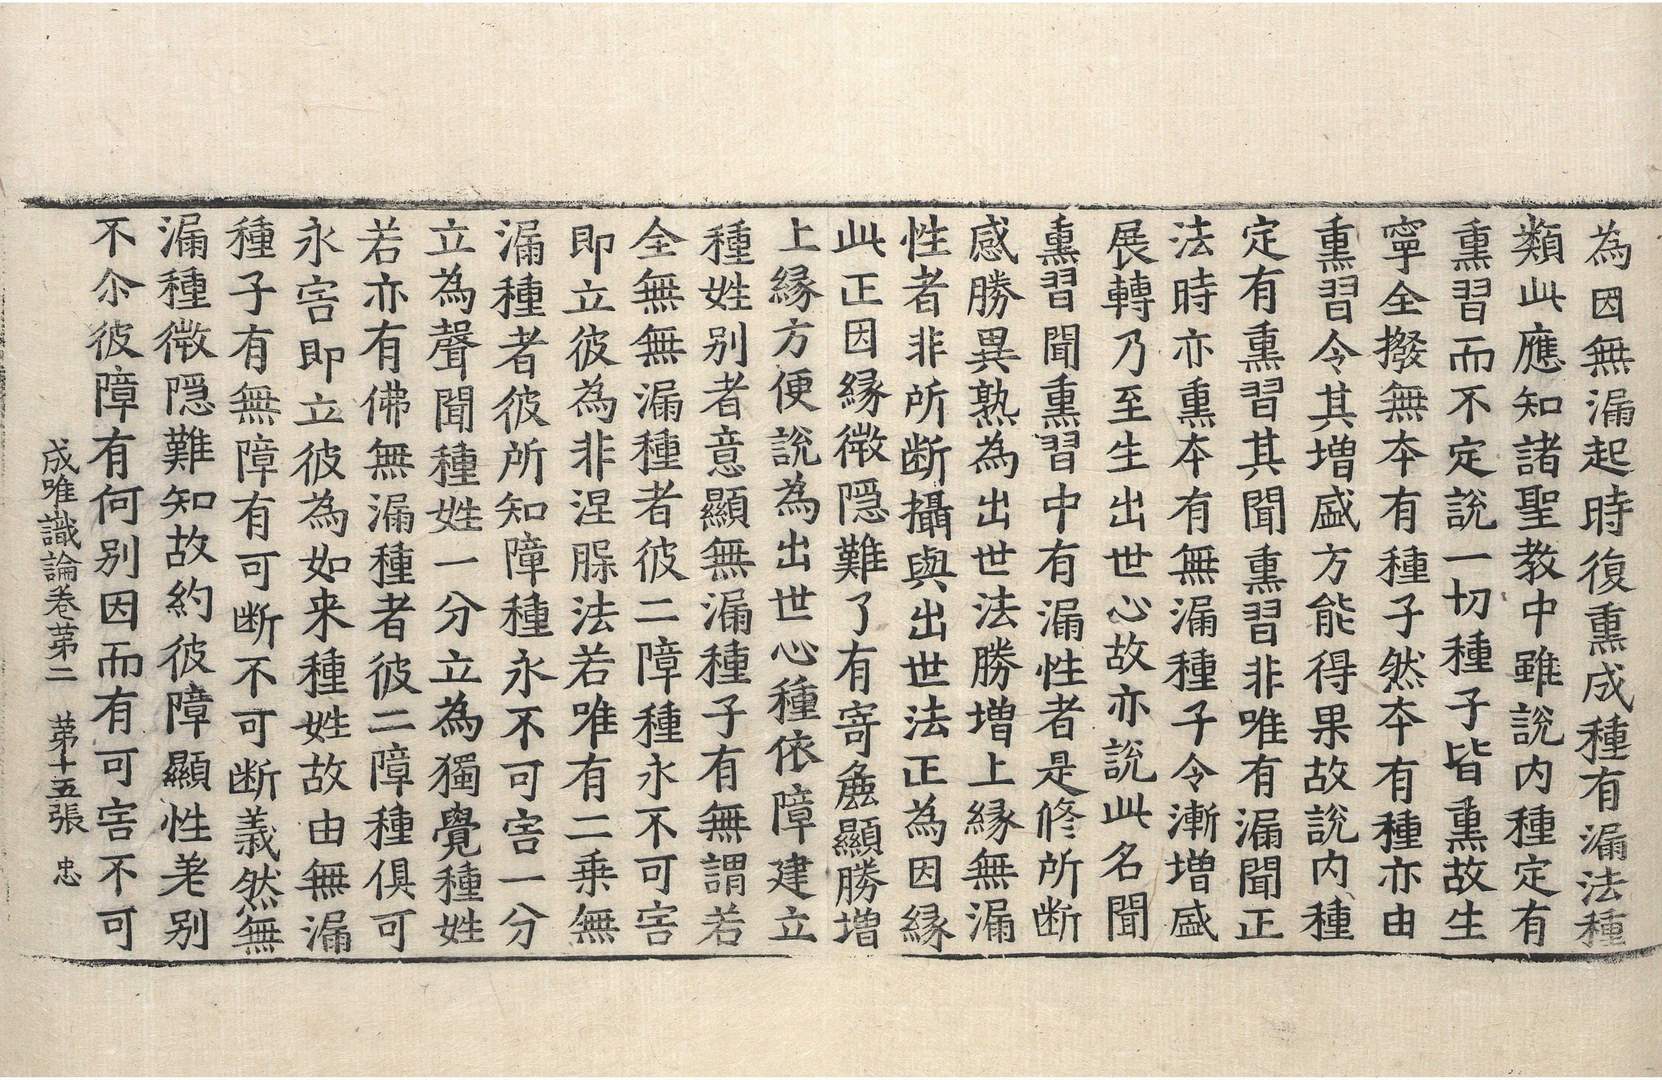 為因無漏起時復熏成種有漏法種
類此應知諸聖教中雖說內種定有
熏習而不定說一切種子皆熏故生
寧全撥無本有種子然本有種亦由
熏習令其增盛方能得果故說內種
定有熏習其聞熏習非唯有漏聞正
法時亦熏本有無漏種子令漸增盛
展轉乃至生出世心故亦說此名聞
熏習聞熏習中有漏性者是修所断
感勝異熟為出世法勝增上緣無漏
性者非所断攝與出世法正為因緣
此正因緣微隱難了有寄麁顯勝增
上緣方便說為出世心種依障建立
種姓别者意顯無漏種子有無謂若
全無無漏種者彼二障種永不可害
即立彼為非涅脲法若唯有二乗無
漏種者彼所知障種永不可害一分
立為聲聞種姓一分立為獨覺種姓
若亦有佛無漏種者彼二障種俱可
永害即立彼為如来種姓故由無漏
種子有無障有可断不可断義然無
漏種微隱難知故約彼障顯性差别
不尒彼障有何别因而有可害不可
成唯識論卷苐二 苐十五張 忠